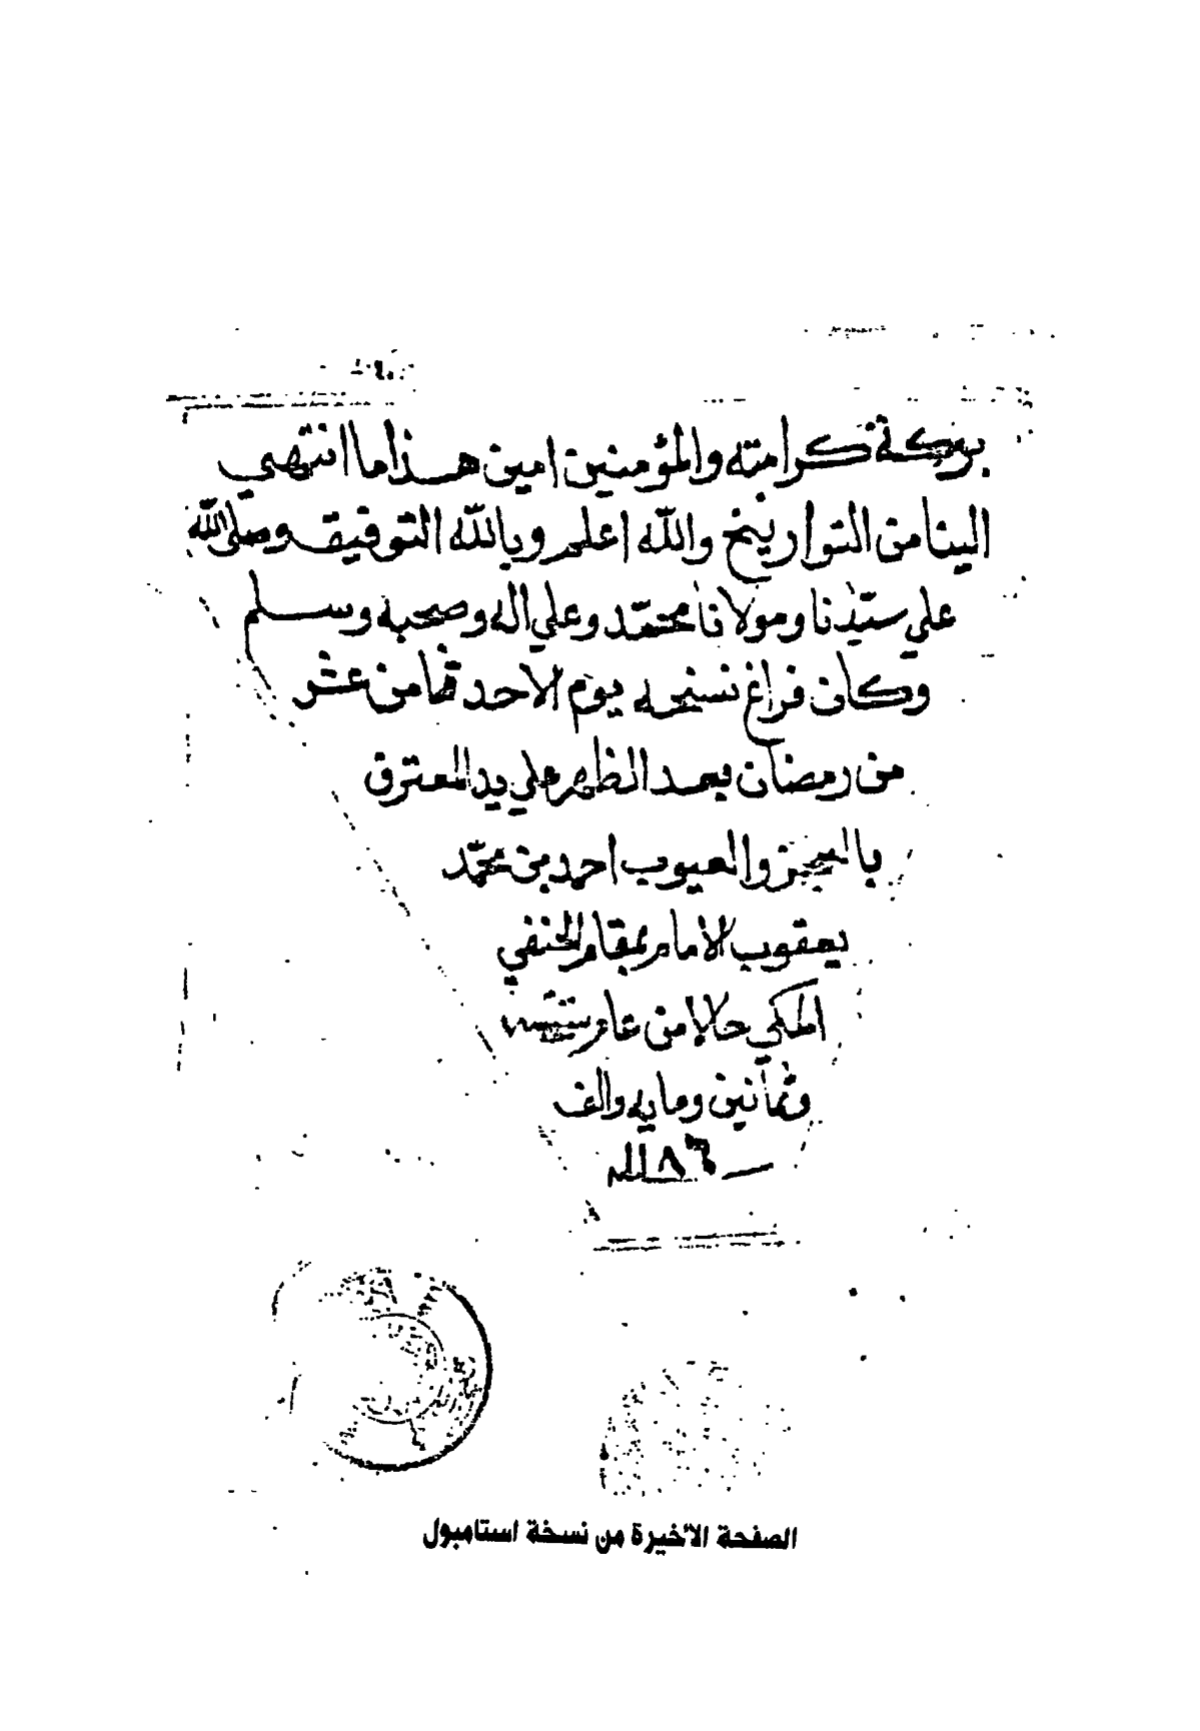 ببركة كرامته والمؤمنين امين هذا ما انتهي
الينا من التواريخ والله اعلم وبالله التوفيق وصلى الله
علي سيّدنا ومولانا محمّد وعلي اله وصحبه وسلم
وكان فراغ نسخه يوم الاحد ثمامن عشر
من رمضان بعد الظهر علي يد المعترف
بالعجز والعيوب احمد بن محمّد
يعقوب الامام بمقام الحنفي
المكي حالا من عام ستة
وثمانين ومايه والف
الصفحة الأخيرة من نسخة استامبول